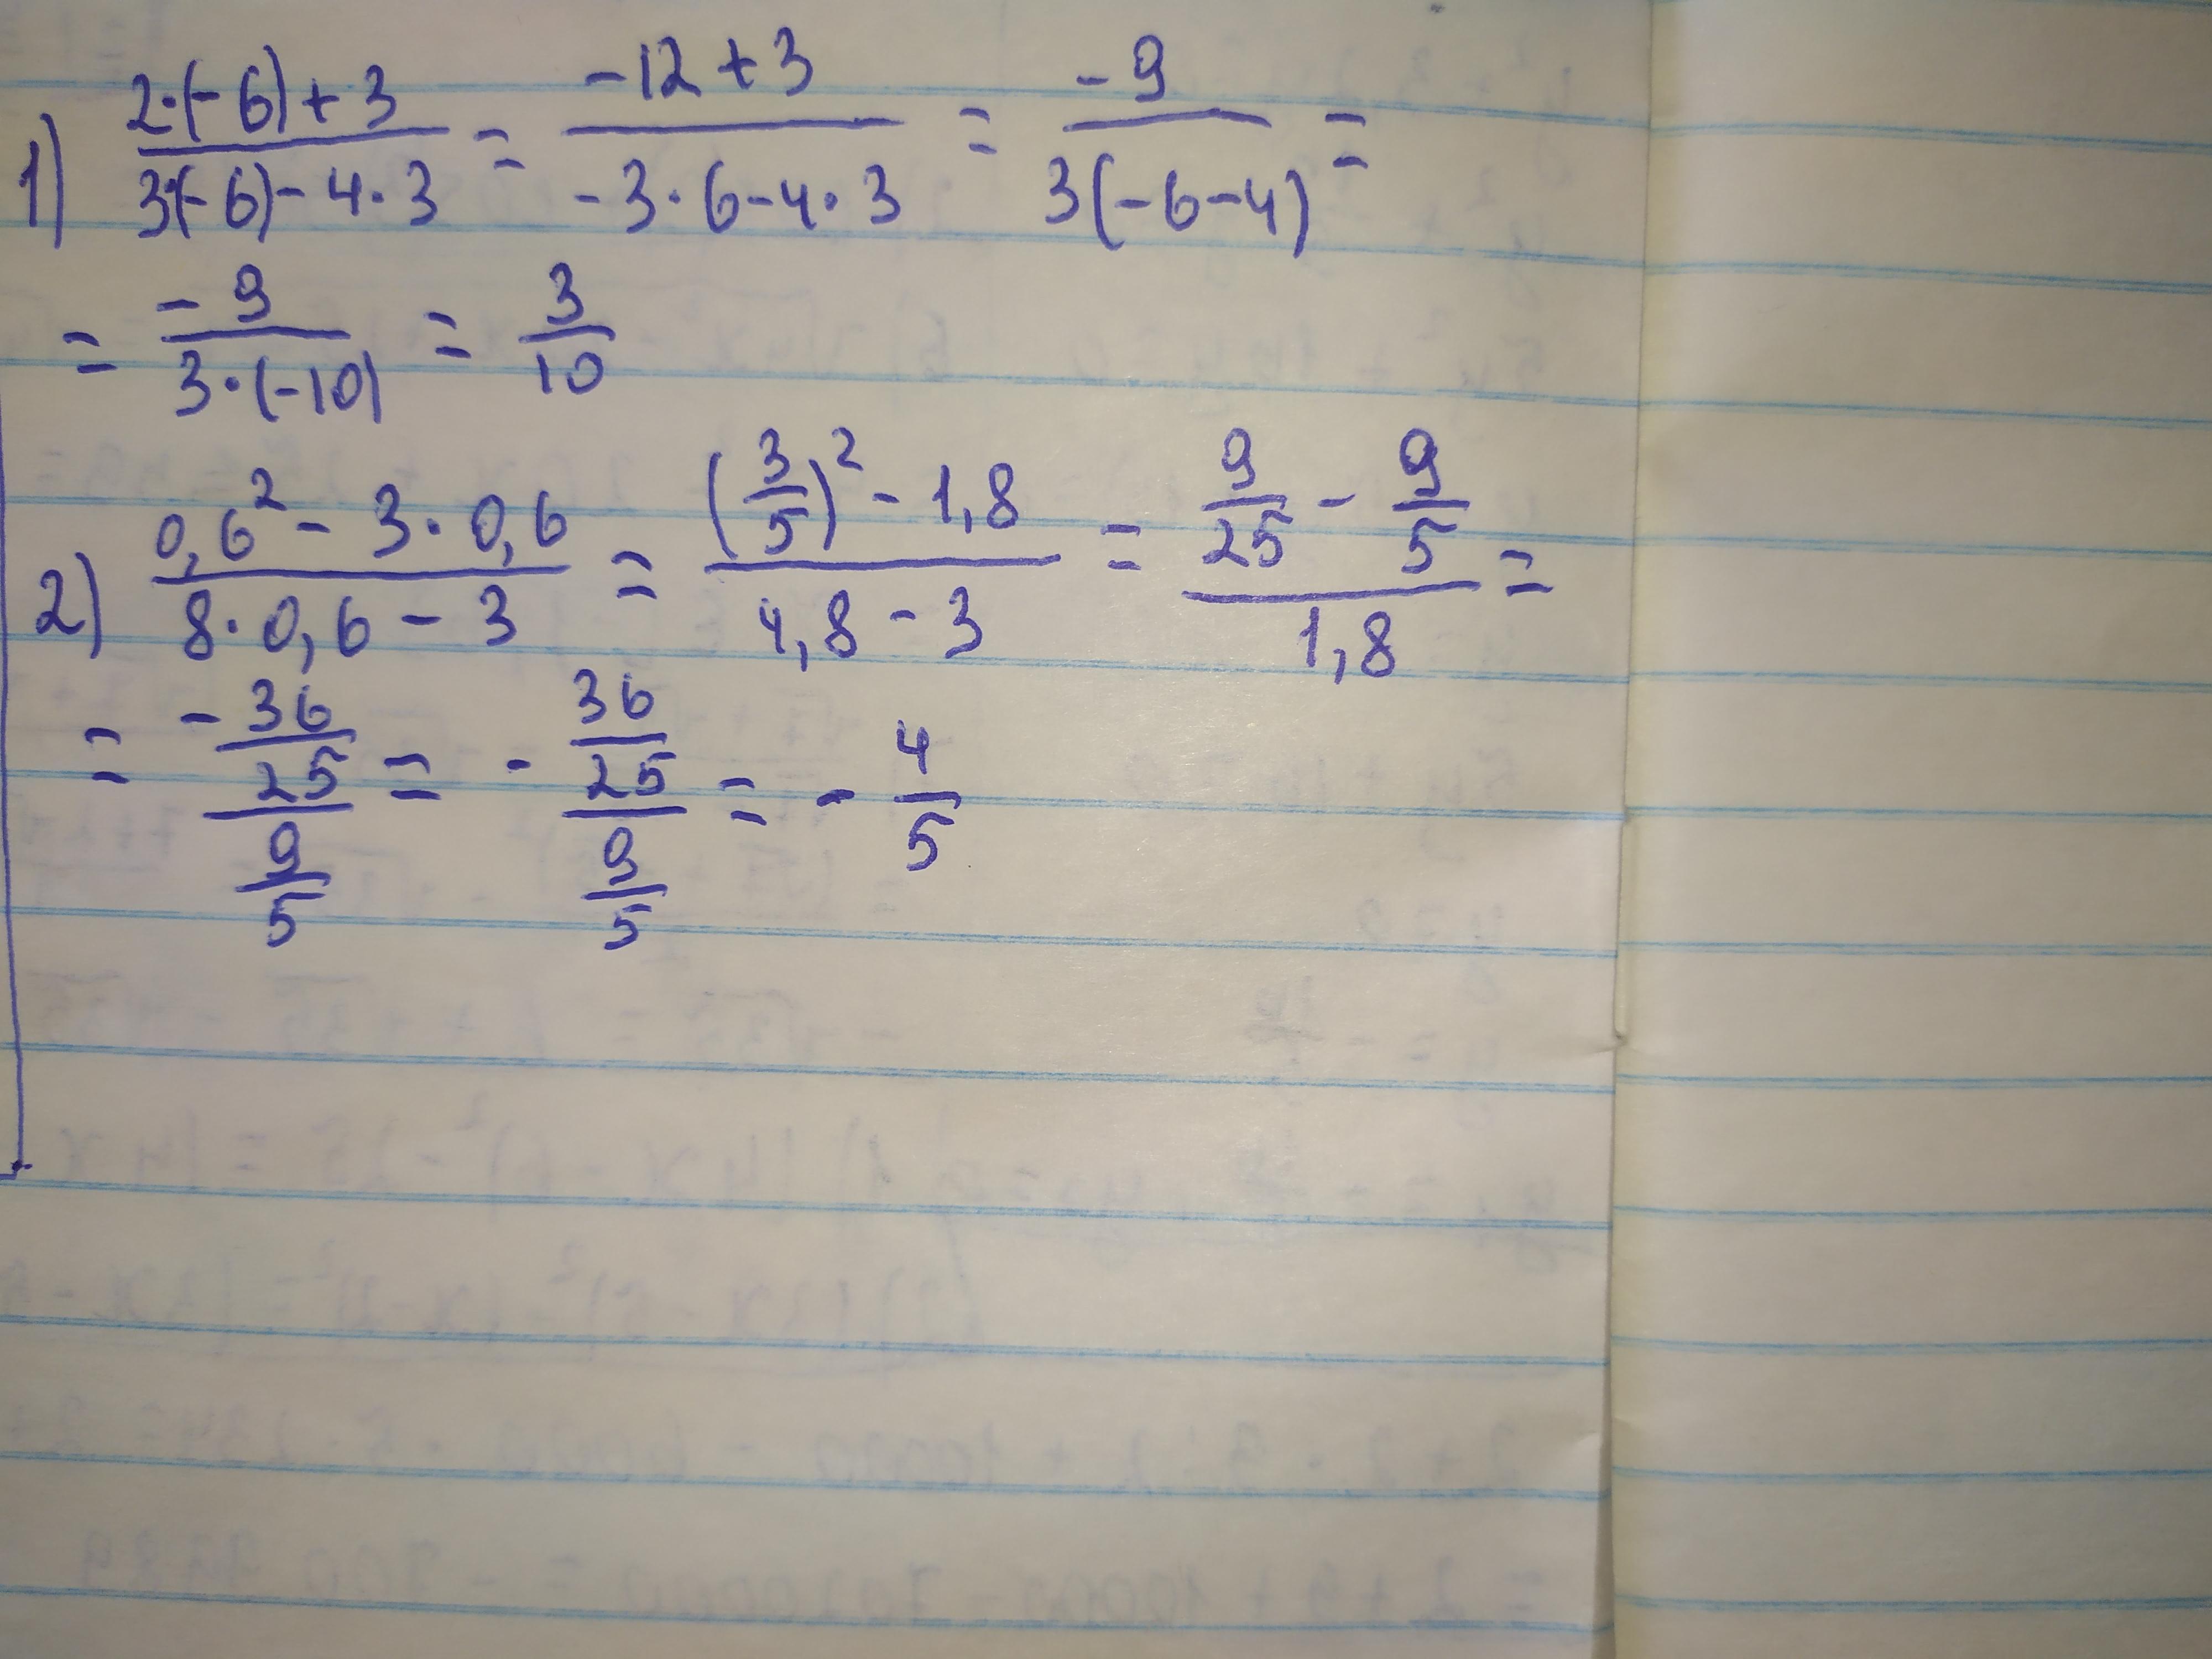 1) (2·(-6)+3)/(3·(-6)-4·3) = (-12+3)/(-3·6-4·3) = (-9)/(3(-6-4)) =
= (-9)/(3·(-10)) = 3/10
2) (0,6² - 3·0,6)/(8·0,6 - 3) = ((3/5)² - 1,8)/(4,8 - 3) = (9/25 - 9/5)/(1,8) =
= (-36/25)/(9/5) = - (36/25)/(9/5) = - 4/5